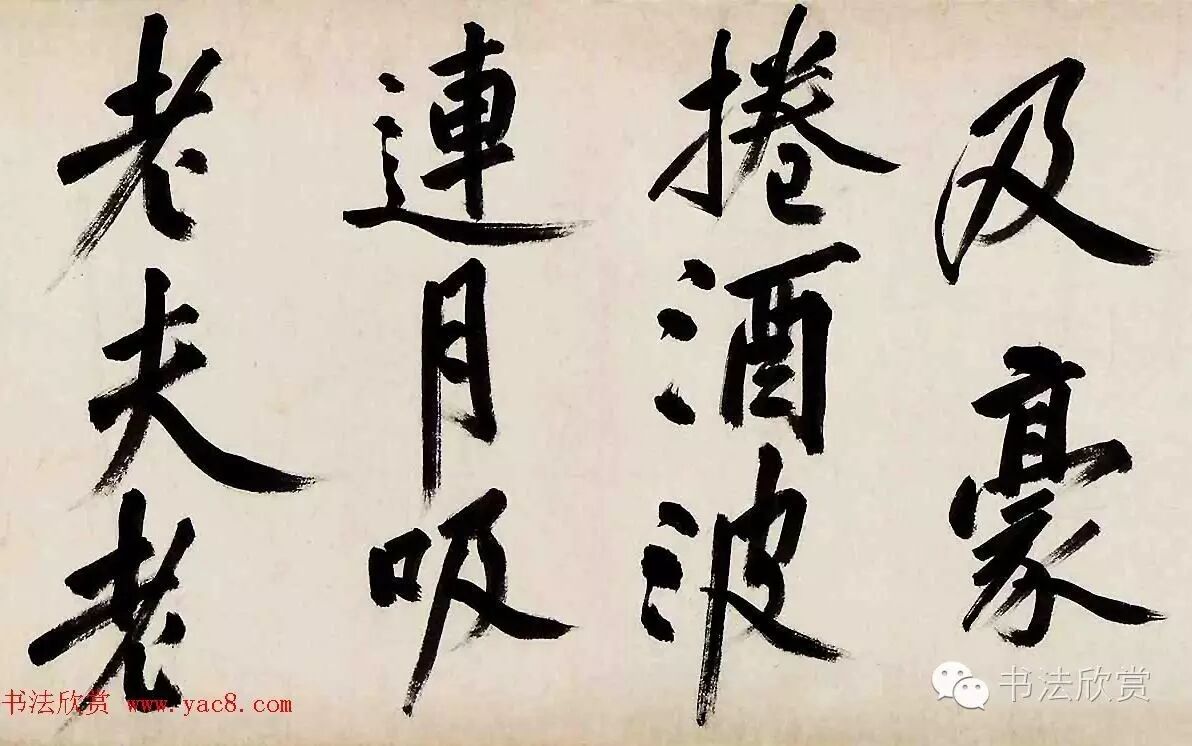 及豪
捲酒波
連月吸
老夫老
书法欣赏 www.yac8.com
书法欣赏